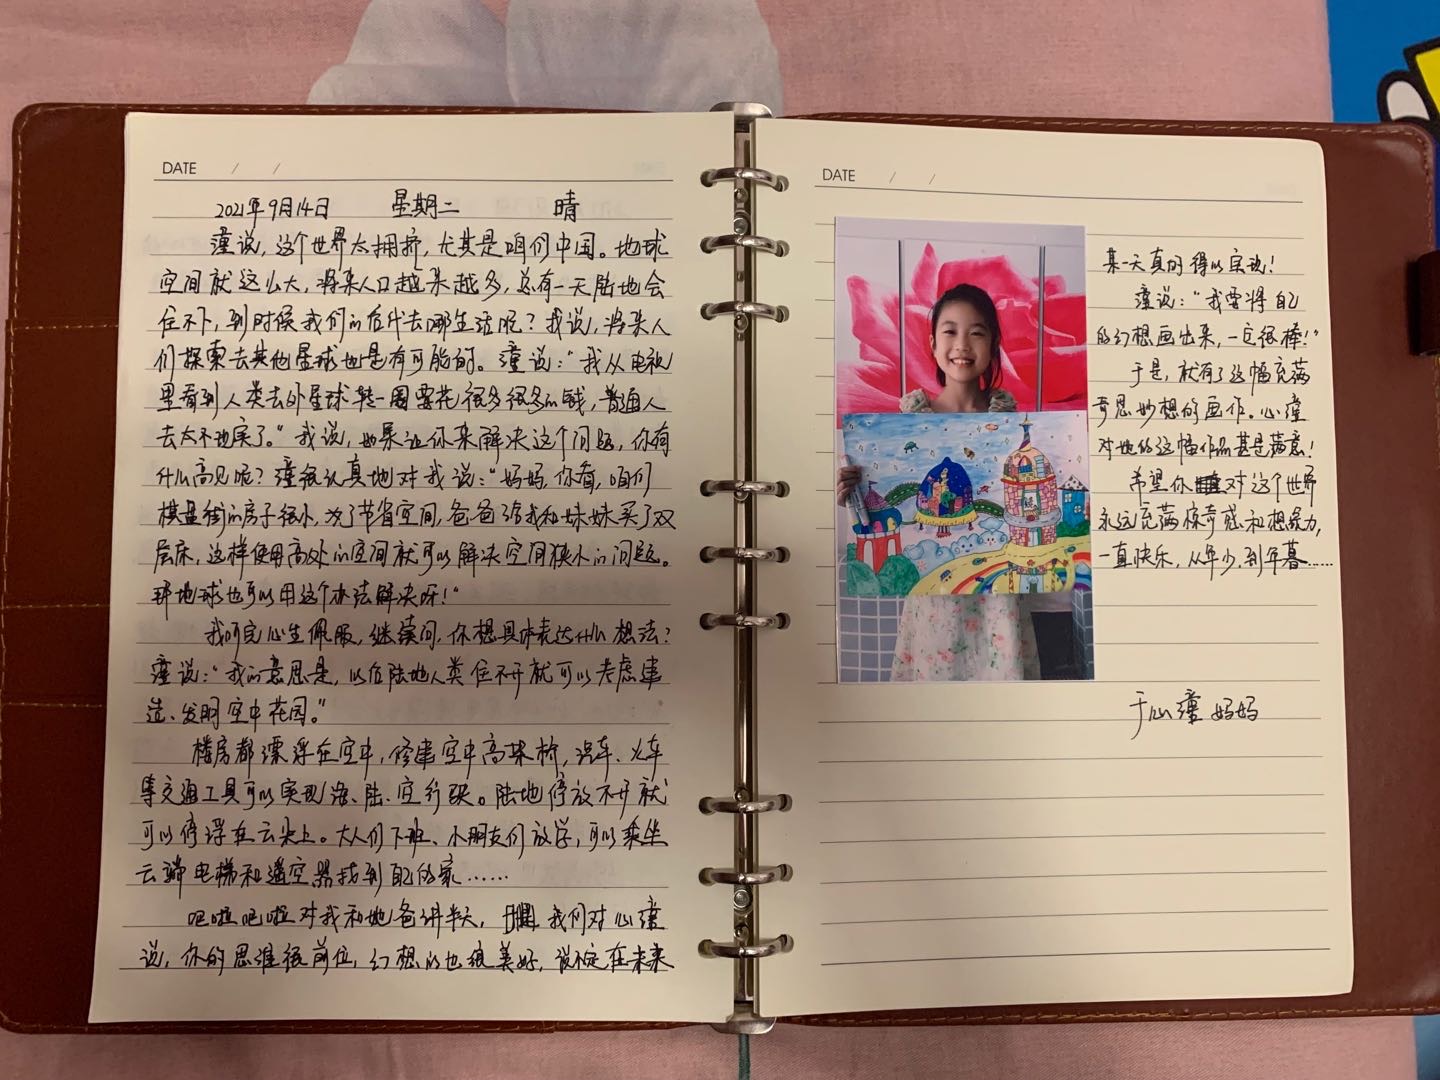 DATE / /
2021年9月14日 星期二 晴
潼说，这个世界太拥挤，尤其是咱们中国。地球
空间就这么大，将来人口越来越多，总有一天陆地会
住不下，到时候我们的后代去哪生活呢？我说，将来人
们探索去其他星球也是有可能的。潼说：“我从电视
里看到人类去外星球转一圈要花很多很多的钱，普通人
去太不现实了。”我说，如果让你来解决这个问题，你有
什么高见呢？潼很认真地对我说：“妈妈，你看，咱们
棋盘街的房子很小，为了节省空间，爸爸给我和妹妹买了双
层床，这样使用高处的空间就可以解决空间狭小的问题。
那地球也可以用这个办法解决呀！”
我听完心生佩服，继续问，你想具体表达什么想法？
潼说：“我的意思是，以后陆地人类住不开就可以考虑建
造、发明空中花园。”
楼房都漂浮在空中，修建空中高架桥，汽车、火车
等交通工具可以实现海、陆、空行驶。陆地停放不开就
可以停浮在云朵上。大人们下班、小朋友们放学，可以乘坐
云端电梯和遥控器找到自己的家……
吧啦吧啦对我和她爸讲半天，我们对心潼
说，你的思维很前位，幻想的也很美好，说不定在未来
DATE / /
某一天真的得以实现！
潼说：“我要将自己
的幻想画出来，一定很棒！”
于是，就有了这幅充满
奇思妙想的画作。心潼
对她的这幅作品甚是满意！
希望你对这个世界
永远充满惊奇感和想象力，
一直快乐，从年少，到年暮……
于心潼妈妈